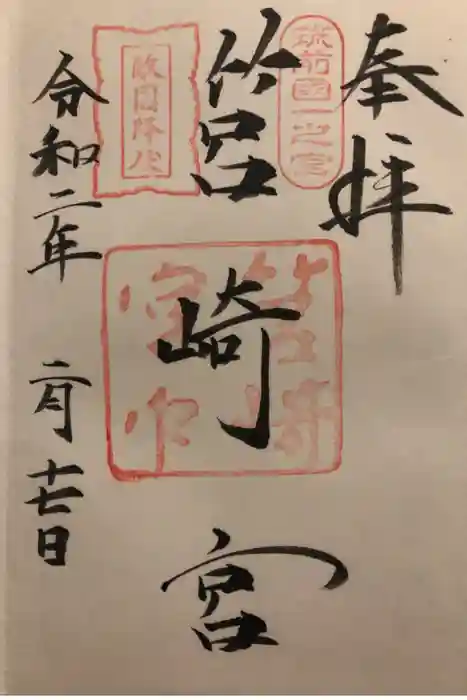 奉拝
筑前國一之宮
筥崎宮
敵国降伏
筥崎宮印
令和二年
二月十七日